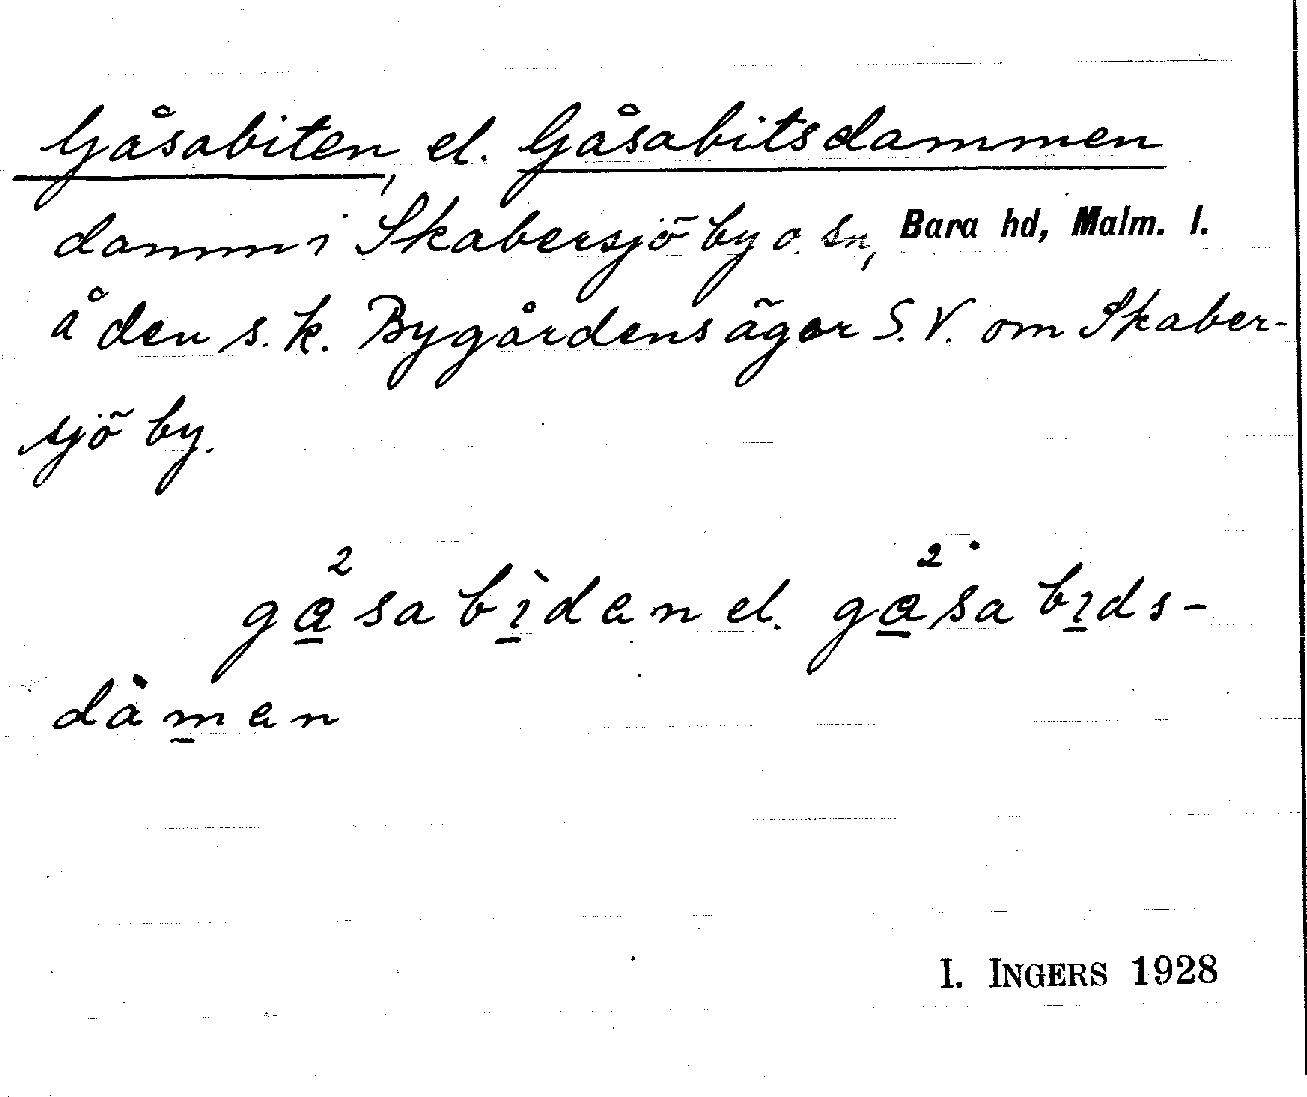 Gåsabiten, el. Gåsabitsdammen
damm i Skabersjö by o. sn, Bara hd, Malm. l.
å den s.k. Bygårdens ägor S.V. om Skaber-
sjö by.
ga̲²sabì̲dan el. ga̲²sabı̲ds-
dàm̲an
I. INGERS 1928